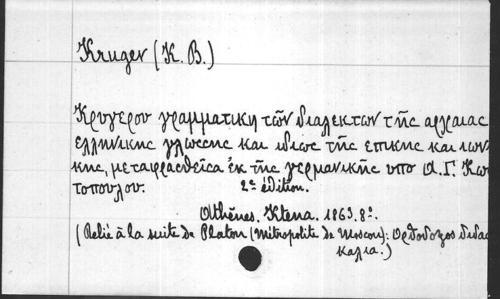 Kruger (K. B.)
Κρυγερου γραμματικη τῶν διαλεκτων τῆς αρχαιας
ελληνικης γλωσσης και ιδιως τῆς επικης και ιων
κης, μεταφρασθεῖσα ἐκ τῆς γερμανικῆς υπο Α. Γ. Κων
τοπουλου. 2e édition.
Athènes. Ktena. 1863. 8º.
(Relié à la suite de Platon (Métropolite de Moscou): Ορθοδοξος διδασ
καλια.)